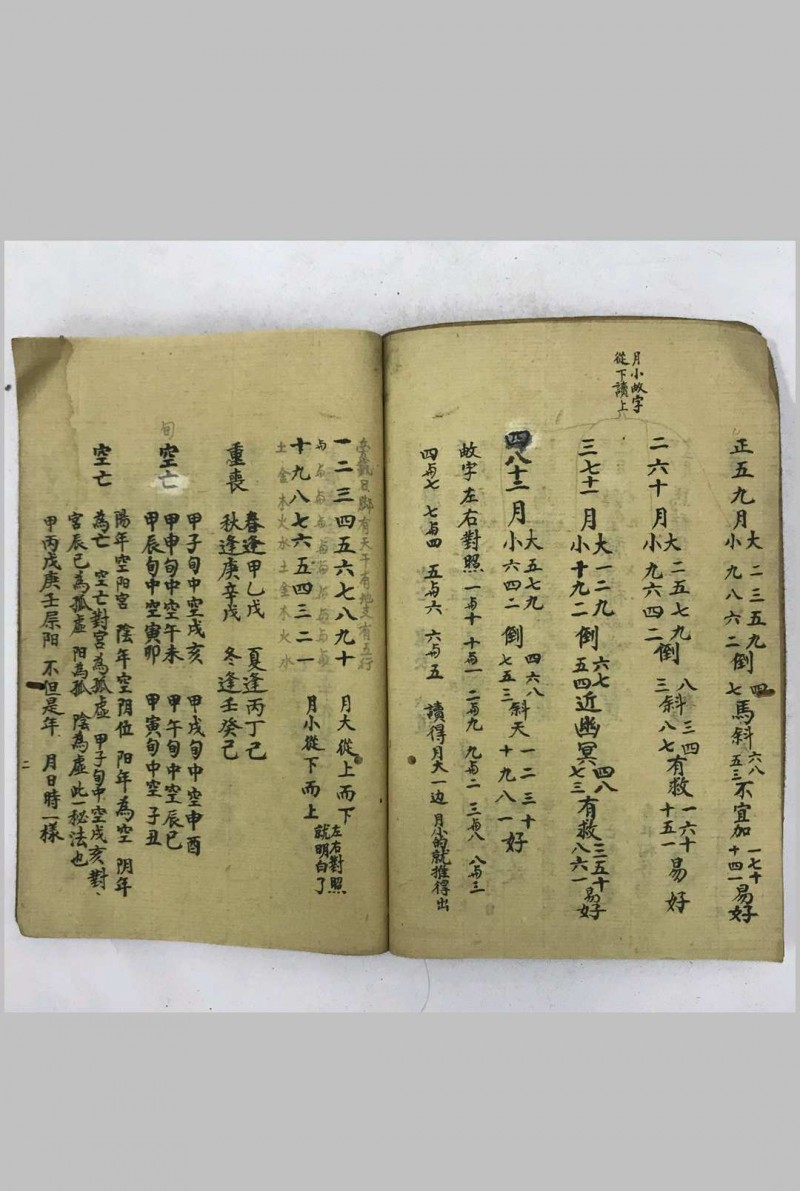 月小故字
從下讀上
正五九月
大 二三五九
小 九八六二
倒
四
七
馬斜
六八
五三
不宜加
一七十
十四一
易好
二六十月
大 二五七九
小 九六四二
倒
八
三
斜
三四
八七
有救
一六十
十五一
易好
三七十一月
大 一二九
小 十九二
倒
六七
五四
近幽冥
四八
七三
有救
三五十
八六一
易好
四八十二月
大 五七九
小 六四二
倒
四六八
七五三
斜天
一二三十
十九八一
好
故字左右對照 一与十 十与一 二与九 九与二 三与八 八与三
四与七 七与四 五与六 六与五 讀得月大一边 月小的就推得出
日脚有天干有地支有五行
一二三四五六七八九十 月大從上而下
与与与与与与与与与与
十九八七六五四三二一 月小從下而上
左右對照
就明白了
土金木火水土金木火水
重喪
春逢甲乙戊 夏逢丙丁己
秋逢庚辛戊 冬逢壬癸己
旬空亡
甲子旬中空戌亥 甲戌旬中空申酉
甲申旬中空午未 甲午旬中空辰巳
甲辰旬中空寅卯 甲寅旬中空子丑
空亡
陽年空阳宮 陰年空阴位 阳年為空 阴年
為亡 空亡對宮為孤虛 甲子旬中空戌亥對、
宮辰巳為孤虛 阳為孤 陰為虛此一秘法也
甲丙戊庚壬屬阳 不但是年 月日時一樣
二